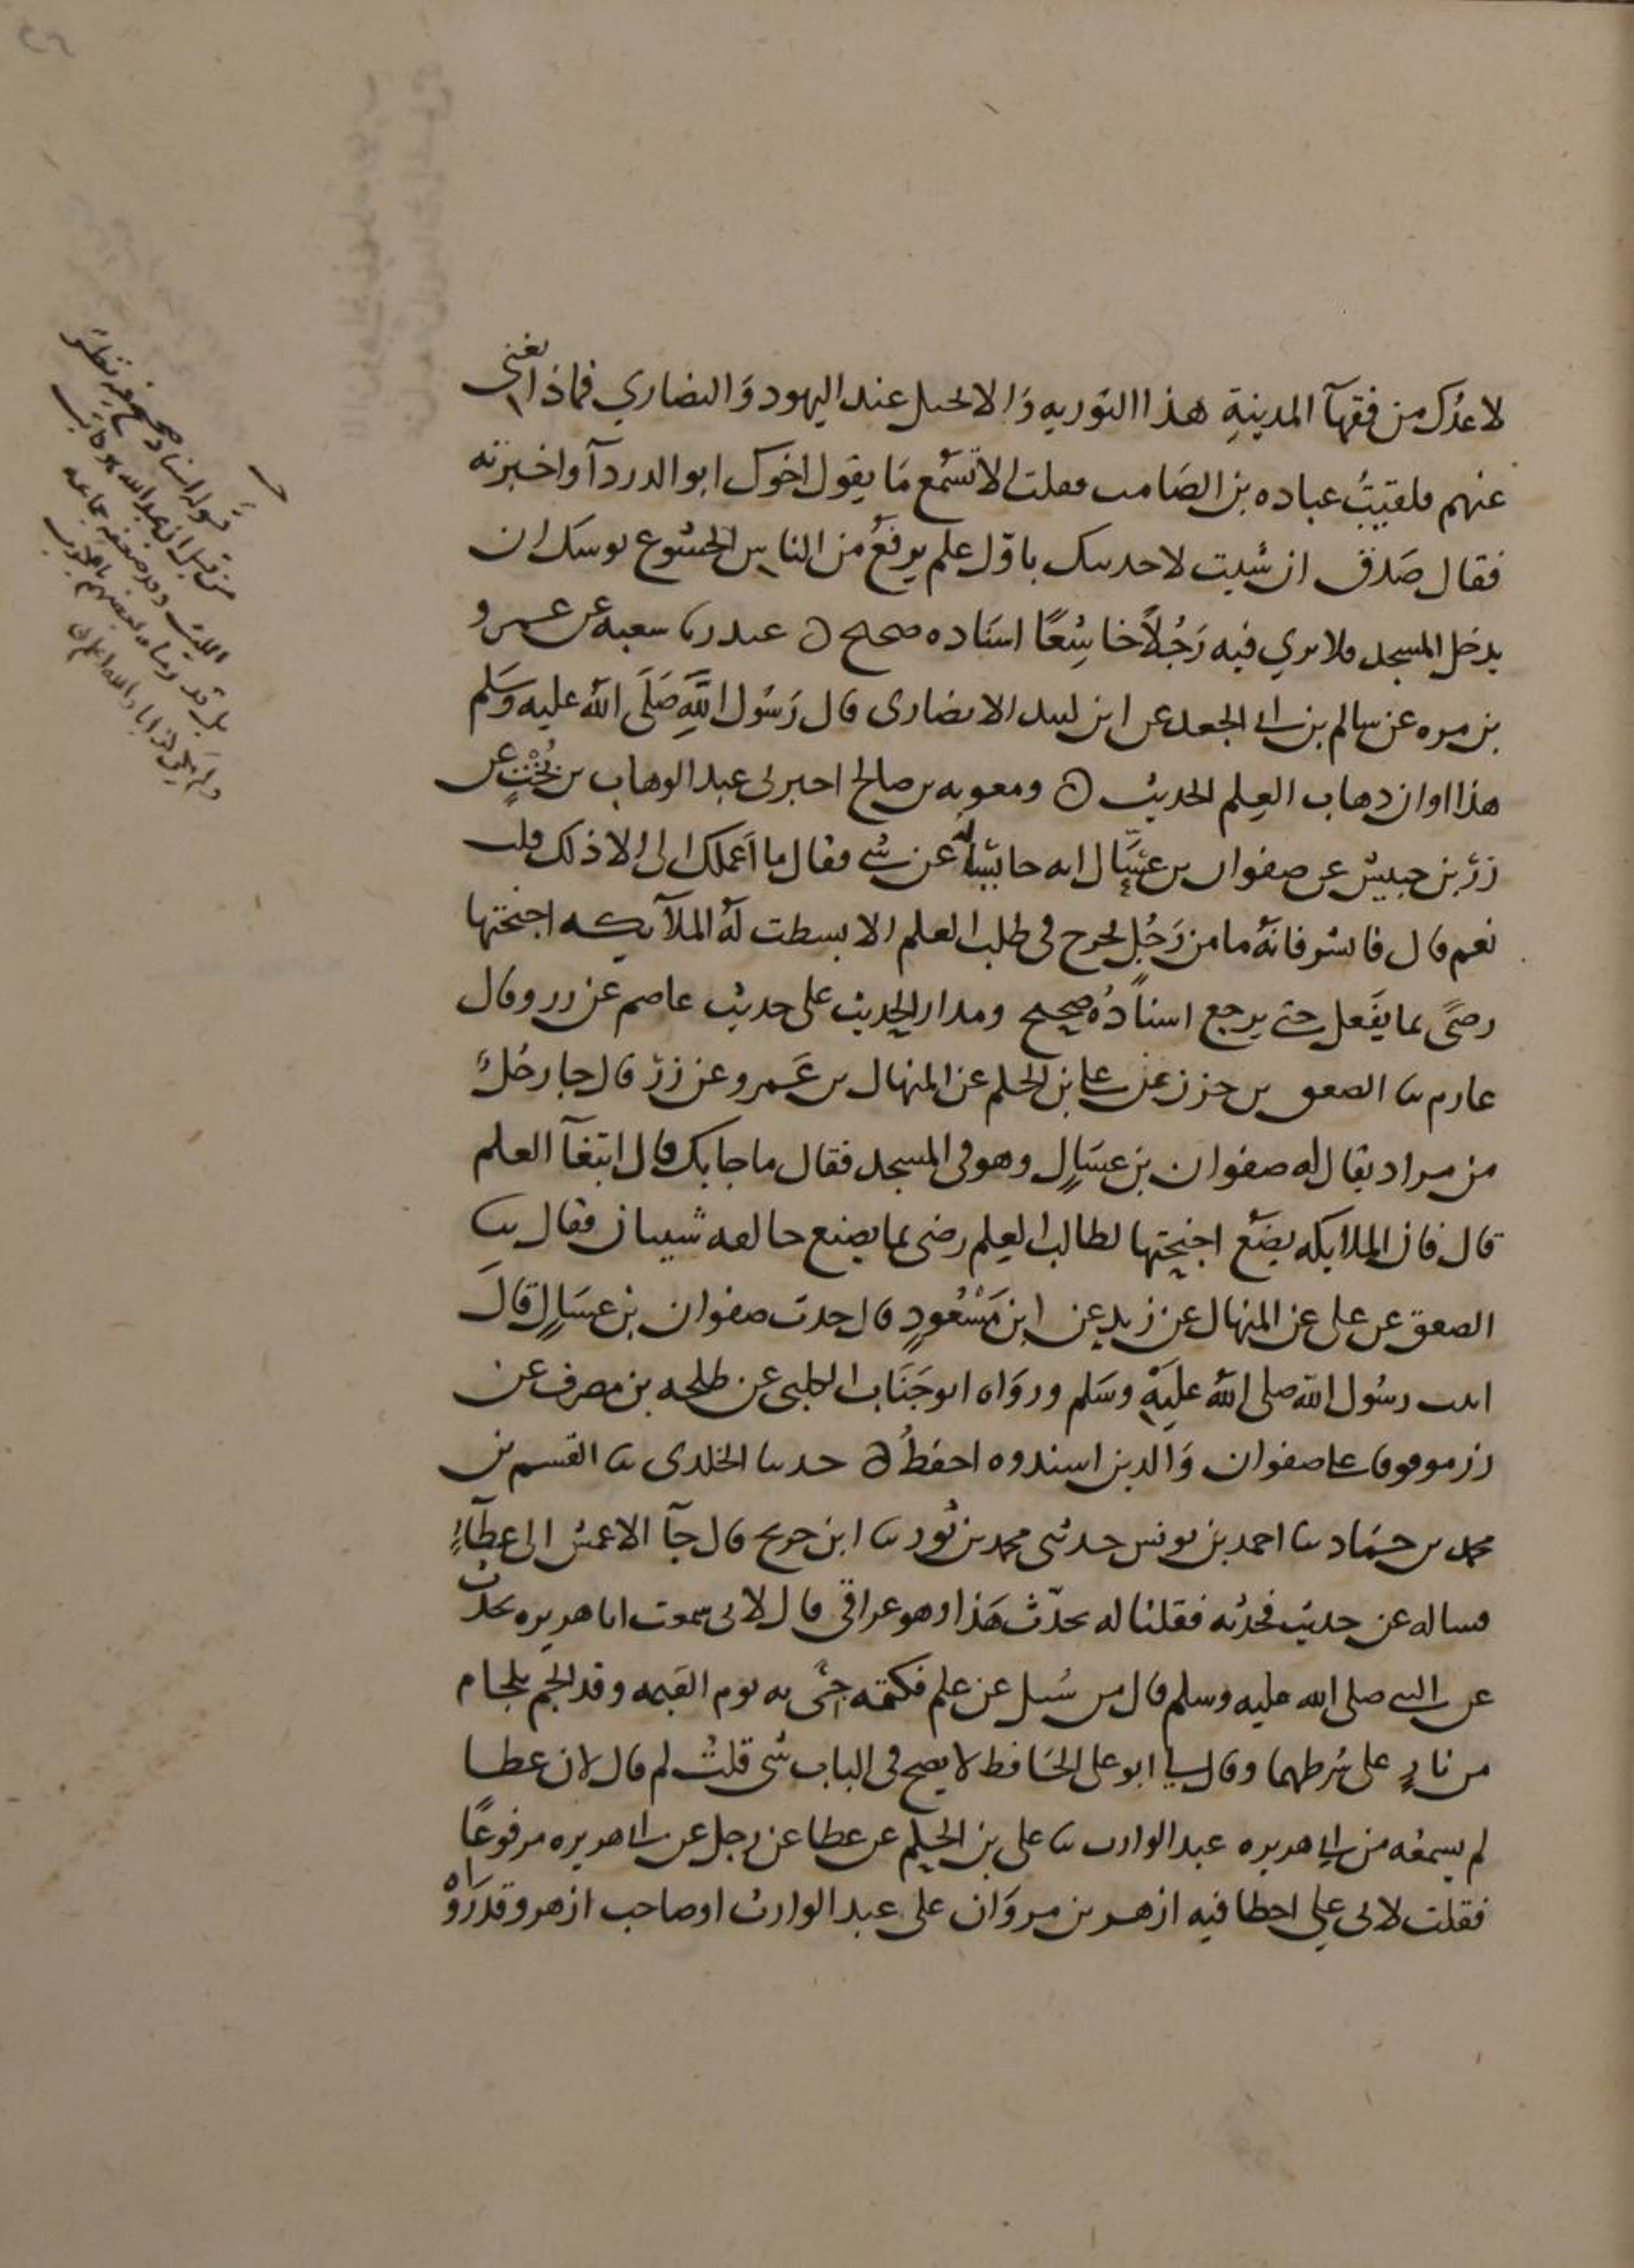 لاعدك من فقهآ المدينةِ هذا التوريه وَالانجيل عند اليهود وَالنصاري فماذا يغني
عنهم فلقيتُ عباده بن الصَامت فقلت الا تسْمع مَا يقول اخوك ابوالدردآ واخبرته
فقال صَدق ان شيت لاحدثنك باوّل علم يرفعُ من الناس الخشوع يوشك ان
يدخل المسجد فلا يري فيه رَجُلاً خاشِعًا اسنَاده صحيح ه غندر نا شعبه عن عمرو
بن مره عن سالم بن ابي الجعد عن ابن لبيد الانصارى قال رَسُول اللَّهِ صَلَى الله عليه وَسَلم
هذا اوان ذهاب العِلم الحديث ه ومعويه بن صالح اخبرنى عبد الوهاب بن بُخْتٍ عن
زرّ بن حبيش عن صفوان بن عسَّال انه جا يسْالهُ عن شي فقال ما اعملك الي الا ذلك قلت
نعم قال فابشر فانهُ ما من رَجُلٍ يخرج فى طلب العلم الا بسطت لهُ الملآيكه اجنحتها
رضىً بما يفَعل حتى يرجع اسنادُه صحيح ومدار الحديث على حديث عاصم عن زر وقال
عارم نا الصعق بن حزن عن علي بن الحكم عن المنهال بن عَمرو عن زرّ قال جا رجُلٌ
من مراد يقال له صفوان بن عسَالٍ وهو فى المسجد فقال ما جا بك قال ابتغآ العلم
قال فان الملايكه يضَع اجنحتها لطالب العِلم رضى بما يصنع خالفه شيبان فقال نا
الصعق عن على عن المنهال عن زر عن ابن مَسْعُودٍ قال حدث صفوان بن عسَالٍ قالَ
اتيت رسُول الله صلى اللهُ عليَهِ وسَلم وروَاه ابو جَنَاب الكلبى عن طلحه بن مصرف عن
زر موقوفا على صفوان وَالذين اسندوه احفظُ ه حدثنا الخلدى نا القسم بن
محمد بن حمّاد نا احمد بن يونس حدثنى محمد بن ثور نا ابن جريج قال جآ الاعمش الى عطآءٍ
فساله عن حديث فحدثه فقلنا له تحدّث هَذا وهو عراقي قال لانى سمعت ابا هريره يحدث
عن النبي صلى الله عليه وسلم قال من سُيل عن علم فكتمه جىَ به يوم القيمه وقد الجم بلجام
من نارٍ على شرطهما وقال لي ابو على الحَافظ لا يصح فى الباب شى قلتُ لم قال لان عطا
لم يسمعه من ابي هريره عبد الوارث نا على بن الحكم عن عطا عن رجل عن ابي هريره مرفوعًا
فقلت لابى علي اخطا فيه ازهر بن مروَان على عبد الوارث او صاحب ازهر وقد رَوَاهُ
قوله اسناد صحيح فيه نظر
من قبل ان عبد الله هو كاتب
الليث وقد ضعفه جماعه